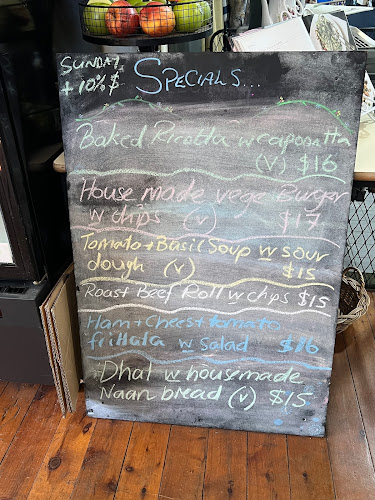 SUNDAY
+ 10% $
SPECIALS...
Baked Ricotta w caponatta
(V) $16
House made vege Burger
w chips (v) $17
Tomato + Basil Soup w sour
dough (v) $15
Roast Beef Roll w chps $15
Ham + Chees + tomato
frittala w Salad $16
Dhal w housemade
Naan bread (v) $15